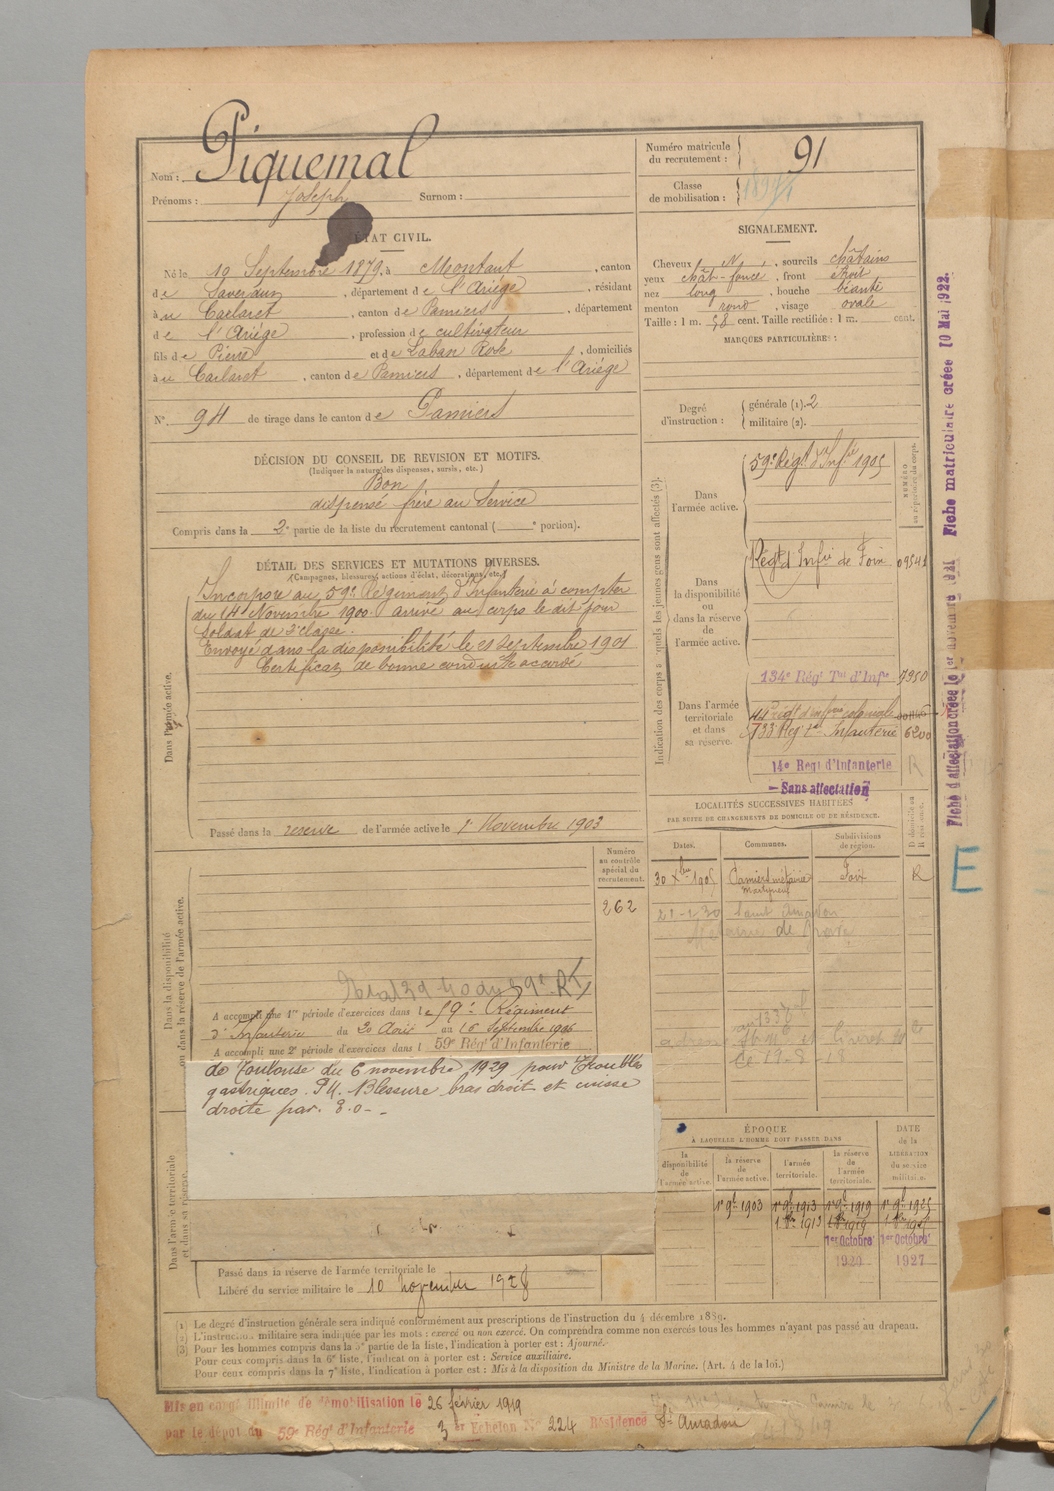 Nom : Piquemal
Prénoms : Joseph Surnom :
Numéro matricule du recrutement : 91
Classe de mobilisation :
ÉTAT CIVIL.
Né le 19 Septembre 1879, à Montaut, canton
de Saverdun, département de l'Ariège, résidant
à u Carlaret, canton de Pamiers, département
de l'Ariège, profession de cultivateur
fils de Pierre et de Laban Rose, domiciliés
à u Carlaret, canton de Pamiers, département de l'Ariège
N° 94 de tirage dans le canton de Pamiers
SIGNALEMENT.
Cheveux N, sourcils châtains
yeux chât-foncé, front étroit
nez long, bouche béante
menton rond, visage ovale
Taille : 1 m. 58 cent. Taille rectifiée : 1 m. cent.
MARQUES PARTICULIÈRES :
Degré d'instruction : générale (1). 2
militaire (2).
DÉCISION DU CONSEIL DE REVISION ET MOTIFS.
(Indiquer la nature des dispenses, sursis, etc.)
Bon
dispensé frère au service
Compris dans la 2e partie de la liste du recrutement cantonal ( e portion).
DÉTAIL DES SERVICES ET MUTATIONS DIVERSES.
(Campagnes, blessures, actions d'éclat, décorations, etc.)
Dans l'armée active.
Incorporé au 59e Régiment d'Infanterie à compter
du 14 Novembre 1900. arrivé au corps le dit jour
Soldat de 2e classe.
Envoyé dans la disponibilité le 21 Septembre 1901
Certificat de bonne conduite accordé
Passé dans la reserve de l'armée active le 1er Novembre 1903
Indication des corps auxquels les jeunes gens sont affectés (3).
NUMÉRO au répertoire du corps.
Dans l'armée active.
59e Régt d'Infie 1905
Dans la disponibilité ou dans la réserve de l'armée active.
Régt d'Infie de Foix 09541
Dans l'armée territoriale et dans sa réserve.
134e Régt Tal d'Infie 7950
133 Reg tal Infanterie 6200
14e Régt d'Infanterie R
— Sans affectation
LOCALITÉS SUCCESSIVES HABITÉES
PAR SUITE DE CHANGEMENTS DE DOMICILE OU DE RÉSIDENCE.
Dates. Communes. Subdivisions de région. D domicile ou R résidence.
30 Xbre 1905 Pamiers métairie Foix R
21-1 30 Saint Amadou
Métairie de
Numéro au contrôle spécial du recrutement.
262
Dans la disponibilité ou dans la réserve de l'armée active.
A accompli une 1re période d'exercices dans le 59e Régiment
d'Infanterie du 20 Août au 16 Septembre 1906
A accompli une 2e période d'exercices dans l 59e Régt d'Infanterie
de Toulouse du 6 novembre 1929 pour troubles
gastriques. P.M. Blessure bras droit et cuisse
droite par. E.O.-
Dans l'armée territoriale et dans sa réserve.
Passé dans la réserve de l'armée territoriale le
Libéré du service militaire le 10 novembre 1928
ÉPOQUE
À LAQUELLE L'HOMME DOIT PASSER DANS
la disponibilité de l'armée active. la réserve de l'armée active. l'armée territoriale. la réserve de l'armée territoriale. DATE de la LIBÉRATION du service militaire.
1er 9bre 1903 1er 9bre 1913 1er 9bre 1919 1er 9bre 1925
1er Octobre 1920 1er Octobre 1927
(1) Le degré d'instruction générale sera indiqué conformément aux prescriptions de l'instruction du 4 décembre 1889.
(2) L'instruction militaire sera indiquée par les mots : exercé ou non exercé. On comprendra comme non exercés tous les hommes n'ayant pas passé au drapeau.
(3) Pour les hommes compris dans la 5e partie de la liste, l'indication à porter est : Ajourné.
Pour ceux compris dans la 6e liste, l'indication à porter est : Service auxiliaire.
Pour ceux compris dans la 7e liste, l'indication à porter est : Mis à la disposition du Ministre de la Marine. (Art. 4 de la loi.)
Mis en congé illimité de démobilisation le 26 février 1919
par le dépôt du 59e Régt d'Infanterie 3 er Echelon N° 224 Résidence St Amadou
Fiche d'affectation créée le 1er novembre 1921 Fiche matriculaire créée 10 Mai 1922.
E